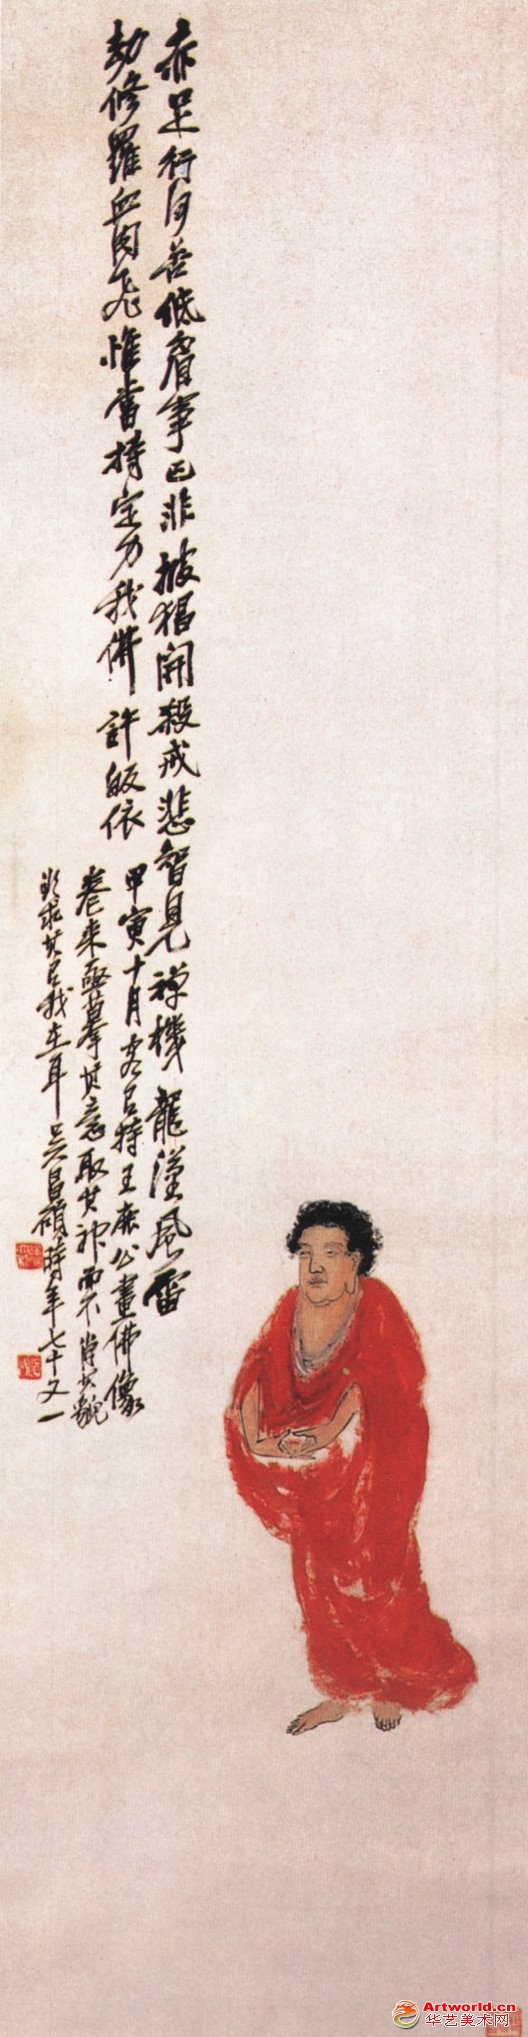 赤足行何苦低眉事已非披猖開殺戒悲智見禪機龍漢風雷
劫修羅血肉飛惟當持定力我佛許皈依
甲寅十月客有持王廉公畫佛像
卷來亟摹其意取其神而不肖其貌
求其有我在耳吳昌碩時年七十又一
Artworld.cn
华艺美术网